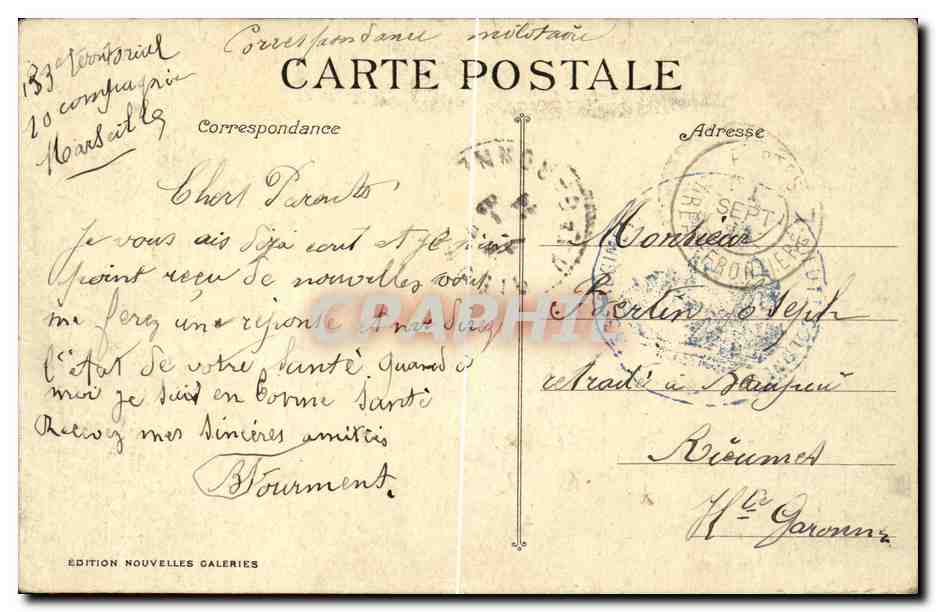 Correspondance militaire
133e territorial
20 compagnie
Marseille
CARTE POSTALE
Correspondance
Adresse
Chers Parents
Je vous ais déja ecrit et je n'ait
point reçu de nouvelles vous
me ferez une réponse et me direz
l'état de votre santé quand à
moi je suis en bonne santé
Recevez mes sincères amitiés
B Fourment.
Monsieur
Bertin Joseph
retraité à
Rieumes
Hte Garonne
SEPT
CPARAMA
ÉDITION NOUVELLES GALERIES